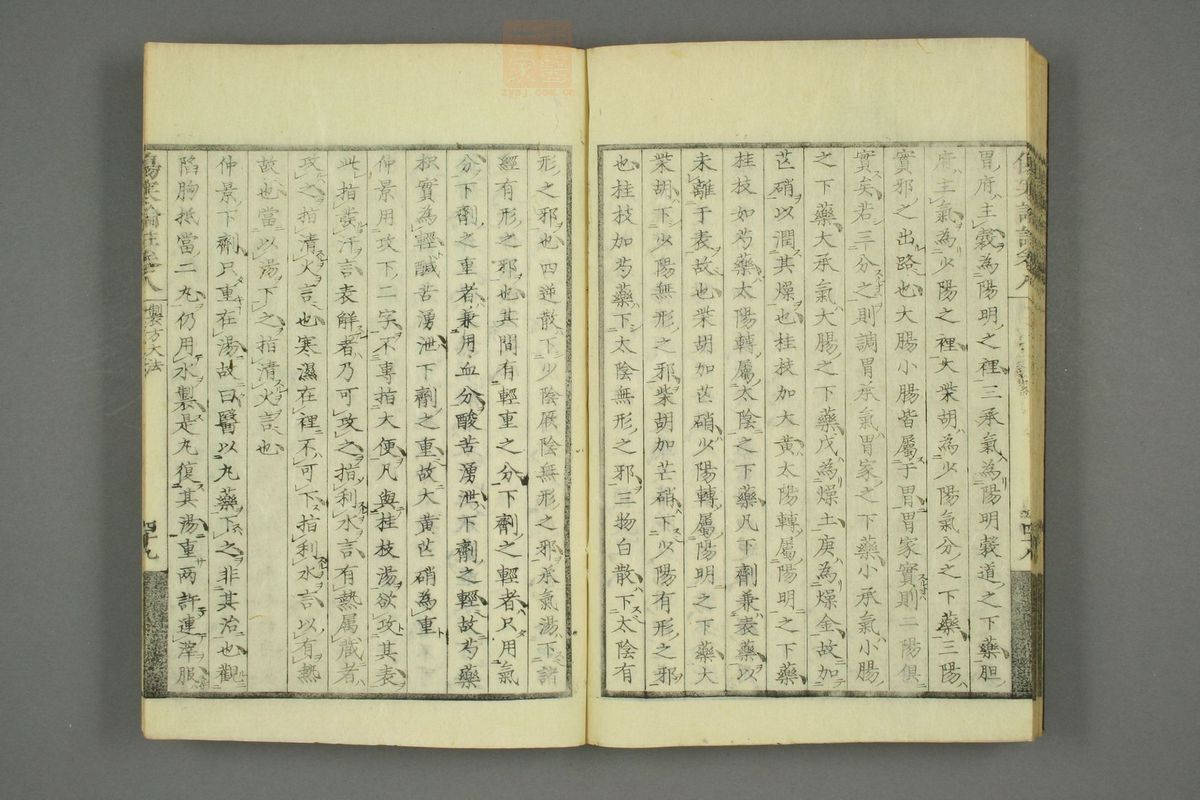 胃府主穀為陽明之裡三承氣為陽明穀道之下藥胆
府主氣為少陽之裡大柴胡為少陽氣分之下藥三陽
實邪之出路也大腸小腸皆屬于胃胃家實則二陽俱
實矣若三分之則調胃承氣胃家之下藥小承氣小腸
之下藥大承氣大腸之下藥戊為燥土庚為燥金故加
芒硝以潤其燥也桂枝加大黃太陽轉屬陽明之下藥
桂枝如芍藥太陽轉屬太陰之下藥凡下劑兼表藥以
未離于表故也柴胡加芒硝少陽轉屬陽明之下藥大
柴胡下少陽無形之邪柴胡加芒硝下少陽有形之邪
也桂枝加芍藥下太陰無形之邪三物白散下太陰有
形之邪也四逆散下少陰厥陰無形之邪承氣湯下諸
經有形之邪也其間有輕重之分下劑之輕者只用氣
分下劑之重者兼用血分酸苦湧泄下劑之輕故芍藥
枳實為輕鹹苦湧泄下劑之重故大黃芒硝為重
仲景用攻下二字不專指大便凡與桂枝湯欲攻其表
此指發汗言表解者乃可攻之指利水言有熱屬藏者
攻之指清火言也寒濕在裡不可下指利水言以有熱
故也當以湯下之指清火言也
仲景下劑只重在湯故曰醫以丸藥下之非其治也觀
陷胸抵當二丸仍用水製是丸復其湯重兩許連滓服
製方大法
四十九